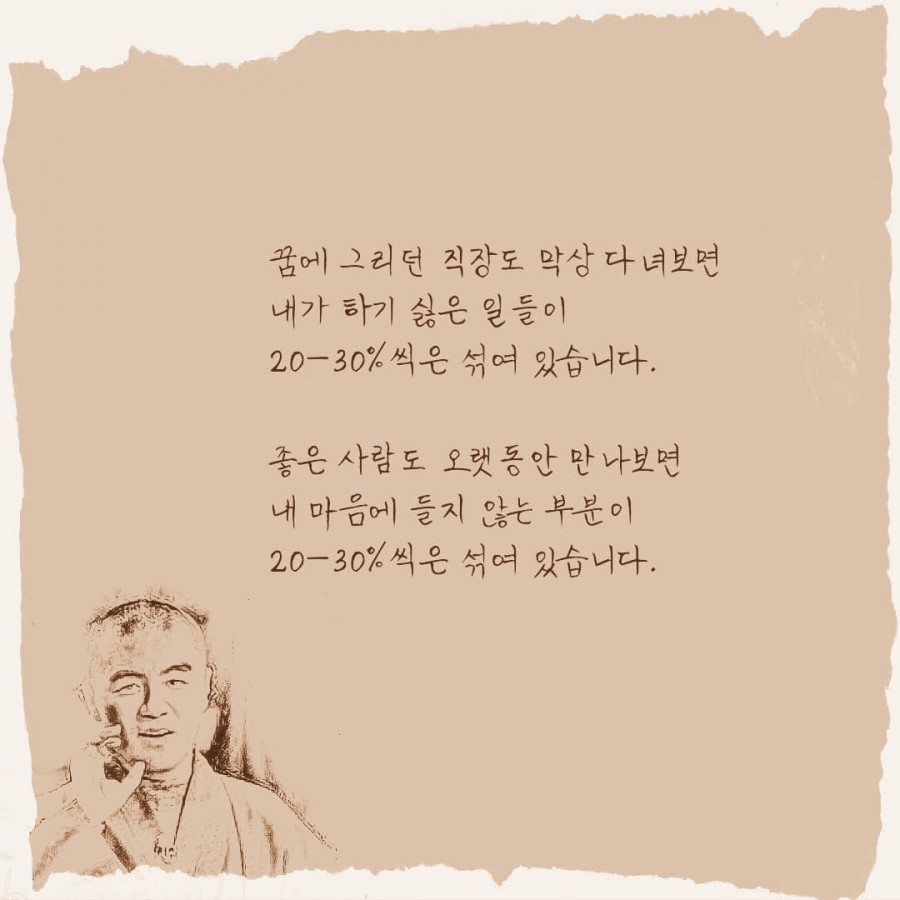 꿈에 그리던 직장도 막상 다녀보면
내가 하기 싫은 일들이
20-30%씩은 섞여 있습니다.
좋은 사람도 오랫동안 만나보면
내 마음에 들지 않는 부분이
20-30%씩은 섞여 있습니다.